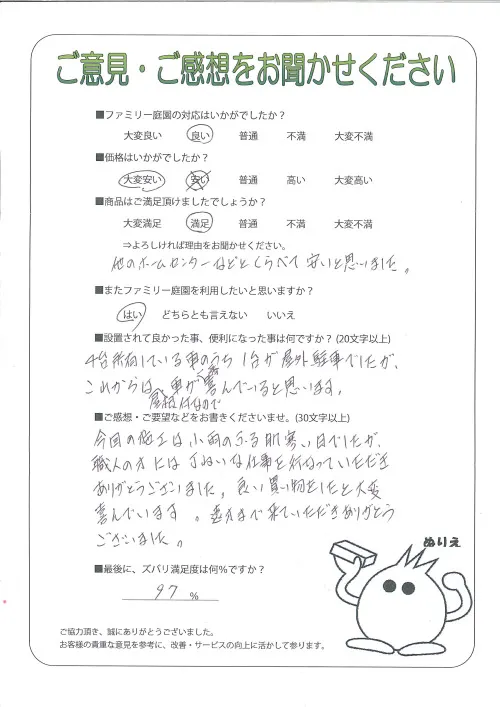 ご意見・ご感想をお聞かせください
■ファミリー庭園の対応はいかがでしたか？
大変良い 良い 普通 不満 大変不満
■価格はいかがでしたか？
大変安い 安い 普通 高い 大変高い
■商品はご満足頂けましたでしょうか？
大変満足 満足 普通 不満 大変不満
⇒よろしければ理由をお聞かせください。
他のホームセンターなどとくらべて安いと思いました。
■またファミリー庭園を利用したいと思いますか？
はい どちらとも言えない いいえ
■設置されて良かった事、便利になった事は何ですか？(20文字以上)
4台所有している車のうち1台が屋外駐車でしたが、
これからは、車が喜んでいると思います。
屋根付なので
■ご感想・ご要望などをお書きくださいませ。(30文字以上)
今回の施工は小雨のふる肌寒い日でしたが、
職人の方にはていねいな仕事を行なっていただき
ありがとうございました。良い買い物をしたと大変
喜んでいます。遠方まで来ていただきありがとう
ございました。
ぬりえ
■最後に、ズバリ満足度は何%ですか？
97 %
ご協力頂き、誠にありがとうございました。
お客様の貴重な意見を参考に、改善・サービスの向上に活かして参ります。